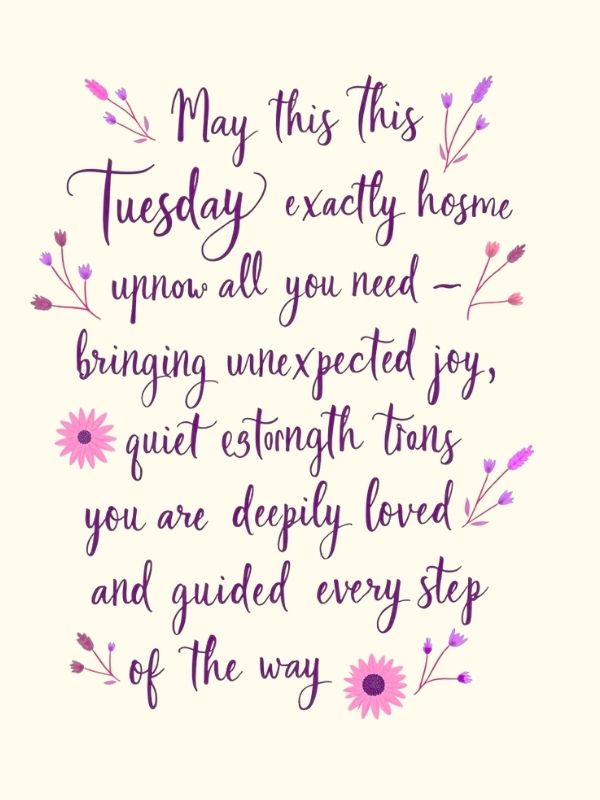 May this this
Tuesday exactly hosme
upnow all you need –
bringing unexpected joy,
quiet estorngth trans
you are deepily loved
and guided every step
of the way